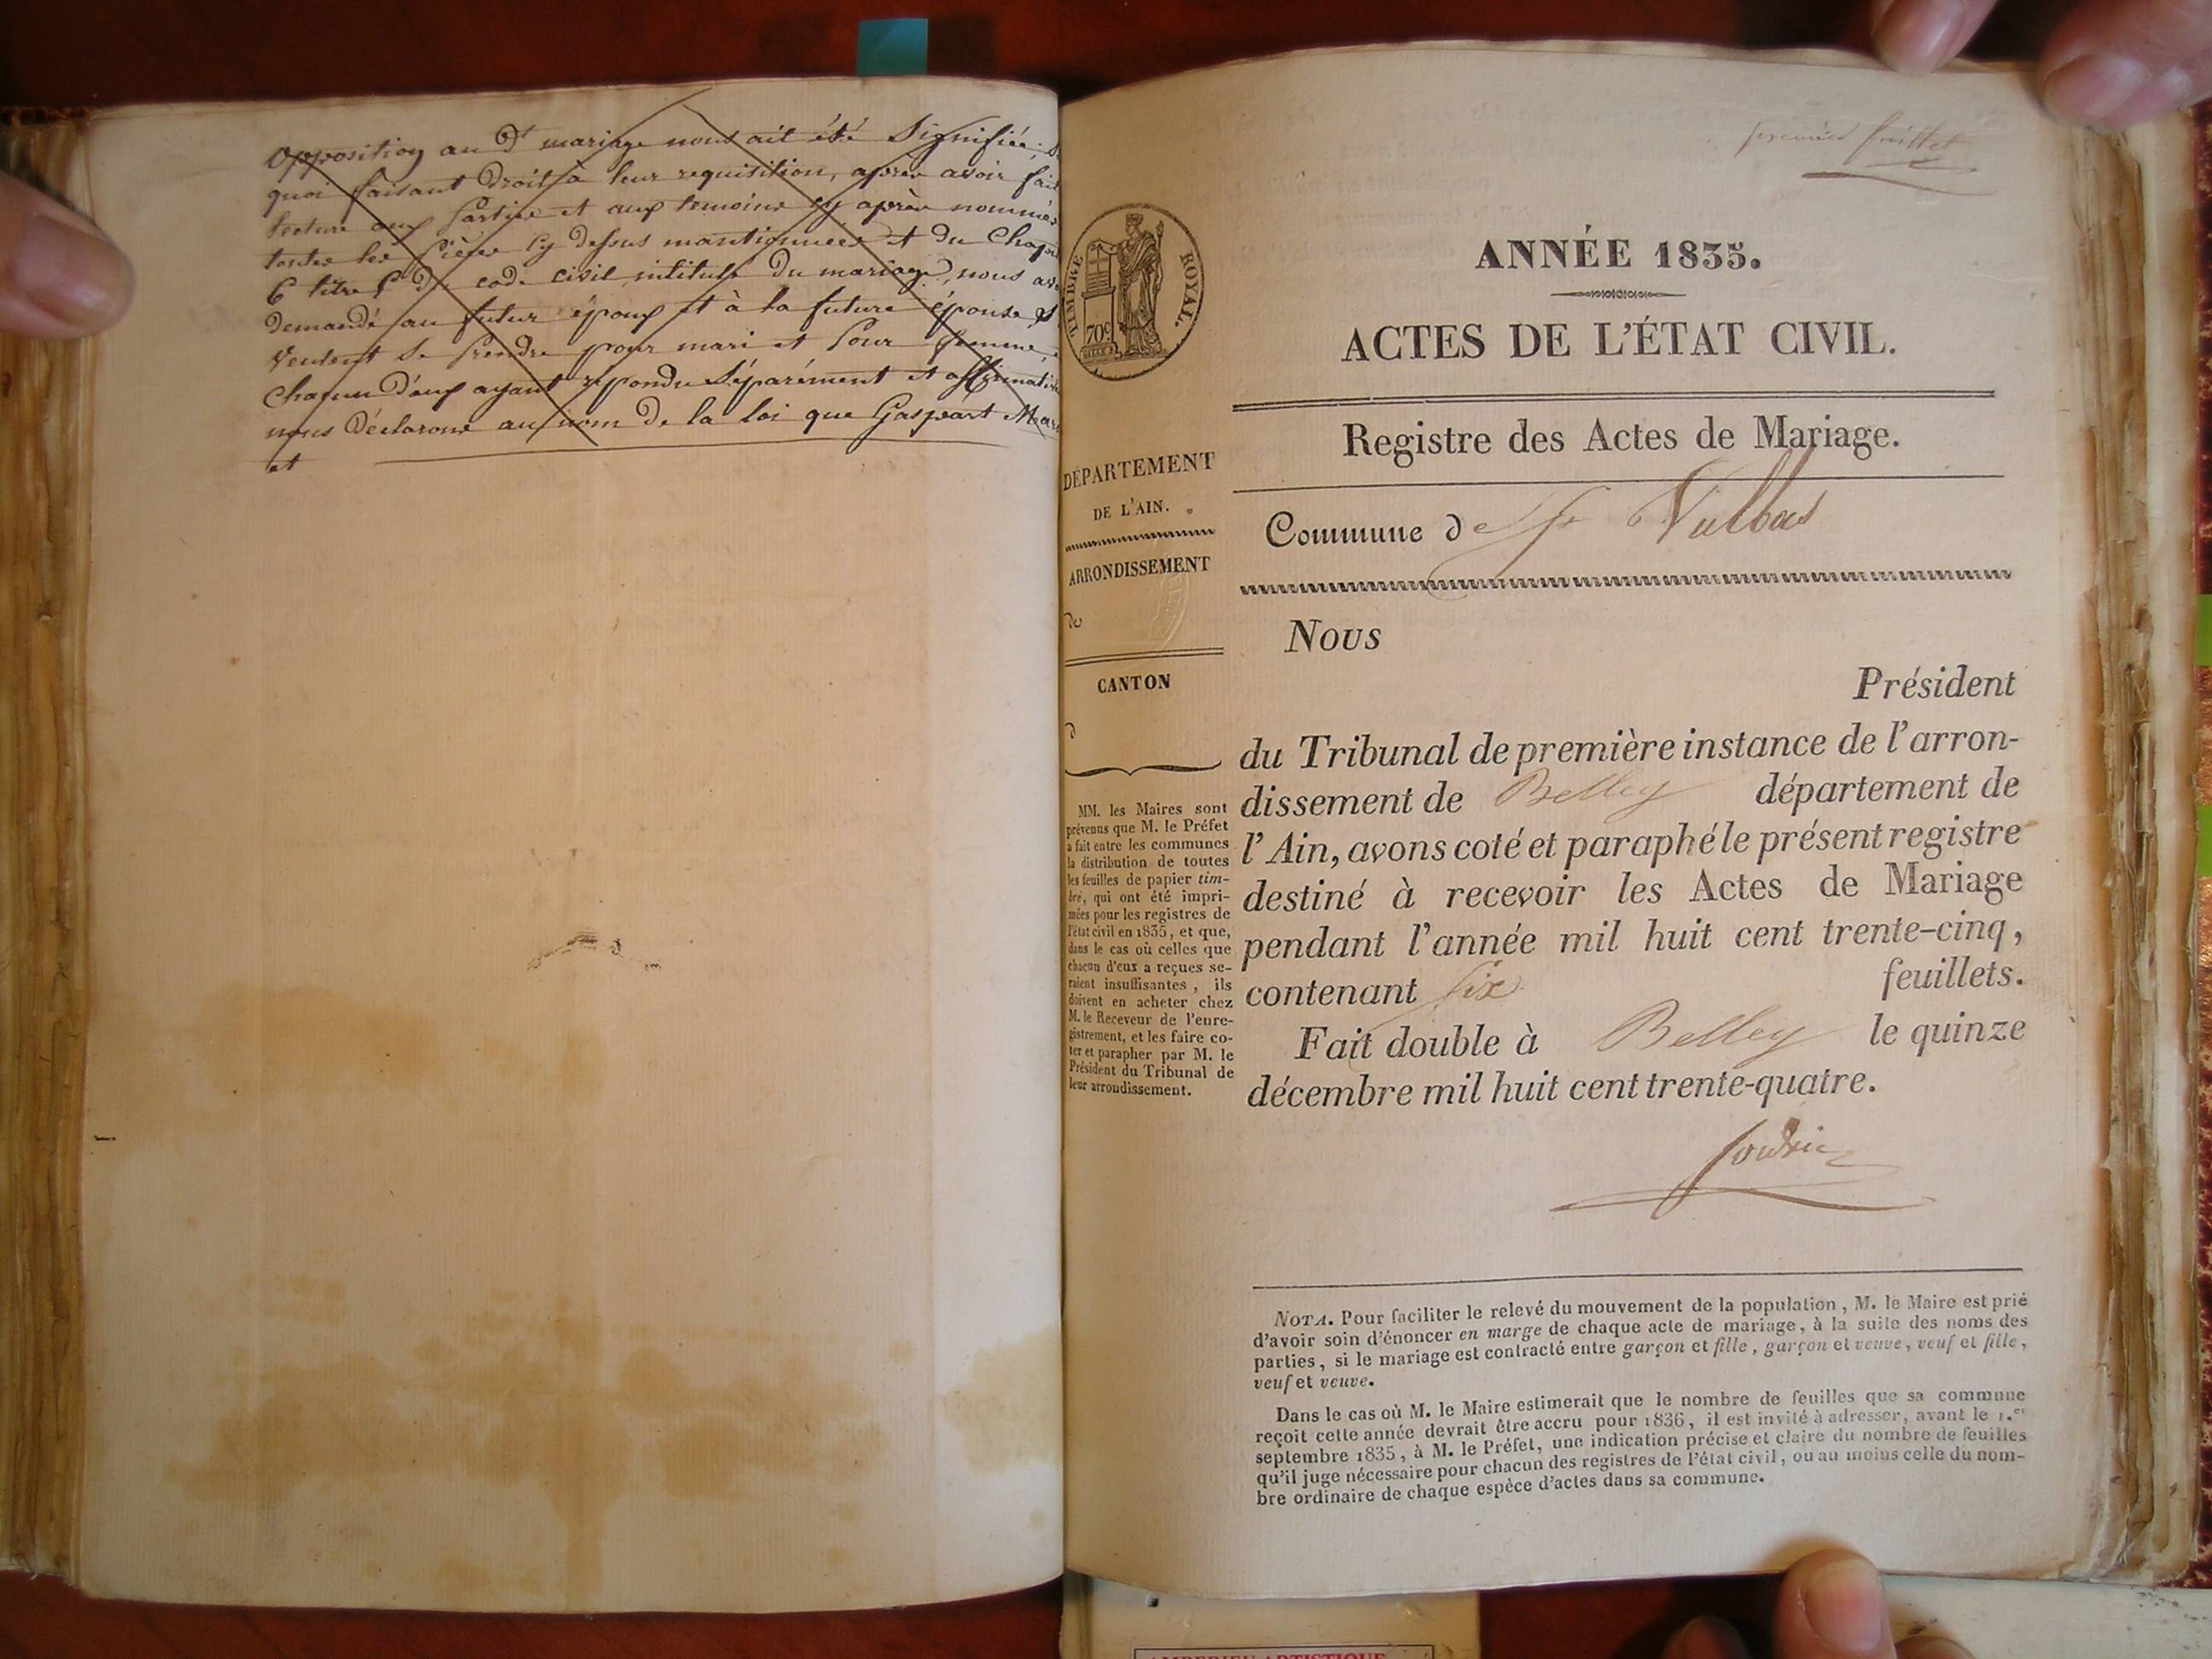 Opposition au dt mariage nous ait été signifiée
quoi faisant droit à leur requisition, après avoir fait
lecture aux parties et aux temoins cy après nommés
toutes les pièces cy dessus mantionnees et du Chapi
6 titre 5 du code civil intitulé du mariage, nous av
demandé au futur époux et à la future épouse s
veulent se prendre pour mari et pour femme,
chacun d'eux ayant repondu séparément et affirmati
nous déclarons au nom de la loi que Gaspart Mar
et
premier feuillet
TIMBRE ROYAL.
70c
ANNÉE 1835.
ACTES DE L'ÉTAT CIVIL.
Registre des Actes de Mariage.
DÉPARTEMENT
DE L'AIN.
ARRONDISSEMENT
de
CANTON
d
MM. les Maires sont
prévenus que M. le Préfet
a fait entre les communes
la distribution de toutes
les feuilles de papier tim-
bré, qui ont été impri-
mées pour les registres de
l'état civil en 1835, et que,
dans le cas où celles que
chacun d'eux a reçues se-
raient insuffisantes, ils
doivent en acheter chez
M. le Receveur de l'enre-
gistrement, et les faire co-
ter et parapher par M. le
Président du Tribunal de
leur arrondissement.
Commune de St Vulbas
Nous
Président
du Tribunal de première instance de l'arron-
dissement de Belley département de
l'Ain, avons coté et paraphé le présent registre
destiné à recevoir les Actes de Mariage
pendant l'année mil huit cent trente-cinq,
contenant six feuillets.
Fait double à Belley le quinze
décembre mil huit cent trente-quatre.
NOTA. Pour faciliter le relevé du mouvement de la population, M. le Maire est prié
d'avoir soin d'énoncer en marge de chaque acte de mariage, à la suite des noms des
parties, si le mariage est contracté entre garçon et fille, garçon et veuve, veuf et fille,
veuf et veuve.
Dans le cas où M. le Maire estimerait que le nombre de feuilles que sa commune
reçoit cette année devrait être accru pour 1836, il est invité à adresser, avant le 1.er
septembre 1835, à M. le Préfet, une indication précise et claire du nombre de feuilles
qu'il juge nécessaire pour chacun des registres de l'état civil, ou au moins celle du nom-
bre ordinaire de chaque espèce d'actes dans sa commune.
AMBERIEU ARTISTIQUE